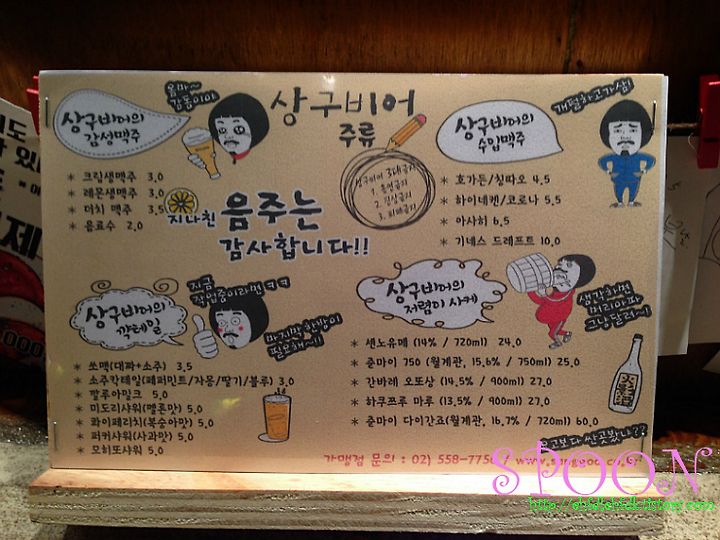 상구비어
주류
음마~
감동이야
상구비어의
감성맥주
* 크림생맥주 3.0
* 레몬생맥주 3.0
* 더치 맥주 3.5
* 음료수 2.0
상구비어 3대금지
1. 흡연금지
2. 진상금지
3.
지나친 음주는
감사합니다!!
개털하고가삼!
상구비어의
수입맥주
* 호가든/칭따오 4.5
* 하이네켄/코로나 5.5
* 아사히 6.5
* 기네스 드래프트 10.0
지금
작업중이라면 ㅋㅋ
상구비어의
깍테일
마지막 한방이
필요해~!!
* 쏘맥(대짜+소주) 3.5
* 소주칵테일(페퍼민트/자몽/딸기/블루) 3.0
* 깔루아밀크 5.0
* 미도리샤워(멜론맛) 5.0
* 콰이페리치(복숭아맛) 5.0
* 퍼커샤워(사과맛) 5.0
* 모히또샤워 5.0
상구비어의
저렴미 사케
생각하면
머리아파
그냥달려~!
* 센노유메 (14% / 720ml) 24.0
* 준마이 750 (월계관, 15.6% / 750ml) 25.0
* 간바레 오또상 (14.5% / 900ml) 27.0
* 하쿠쯔루 마루 (13.5% / 900ml) 27.0
* 준마이 다이긴죠(월계관, 16.7% / 720ml) 60.0
가맹점 문의 : 02) 558-775 / www.sanggoo.co.kr
SPOON